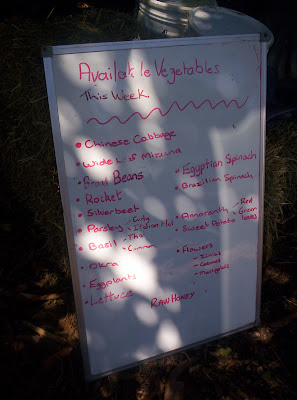 Available Vegetables
This Week
• Chinese Cabbage
• Mizuna
• Beans
• Rocket
• Silverbeet
• Parsley - Curly
- Italian
• Basil - Thai
- Cinnamon
• Okra
• Eggplants
• Lettuce
• Egyptian Spinach
• Brazilian Spinach
• Amaranth - Red
- Green
• Sweet Potato leaves
• Flowers
RAW HONEY